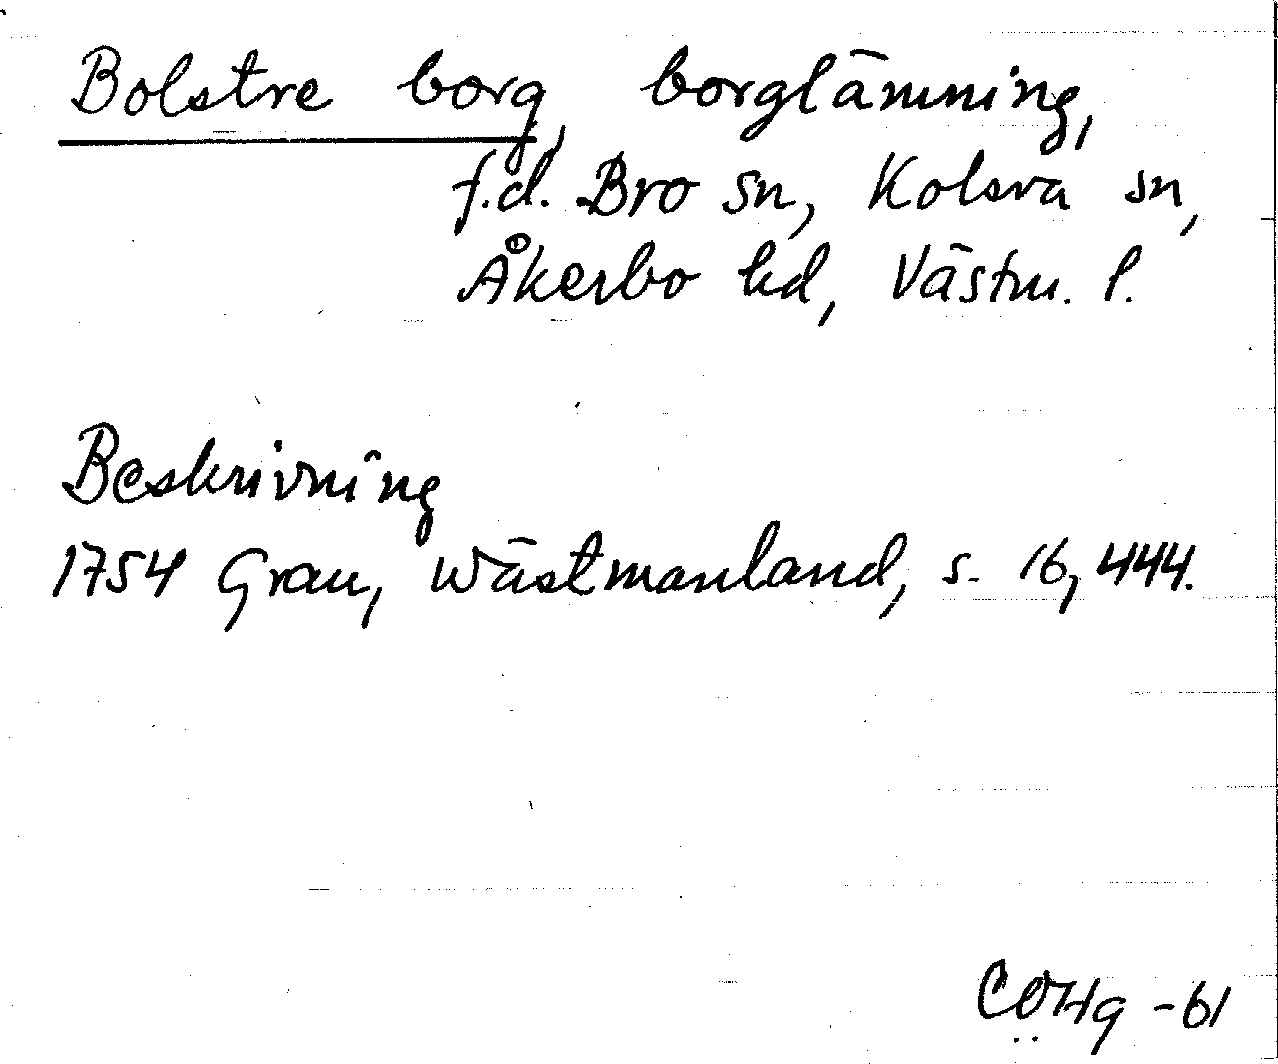 Bolstre borg, borglämning,
f.d. Bro sn, Kolsva sn,
Åkerbo hd, Västm. l.
Beskrivning
1754 Grau, Wästmanland, s. 16, 444.
CÖHg -61